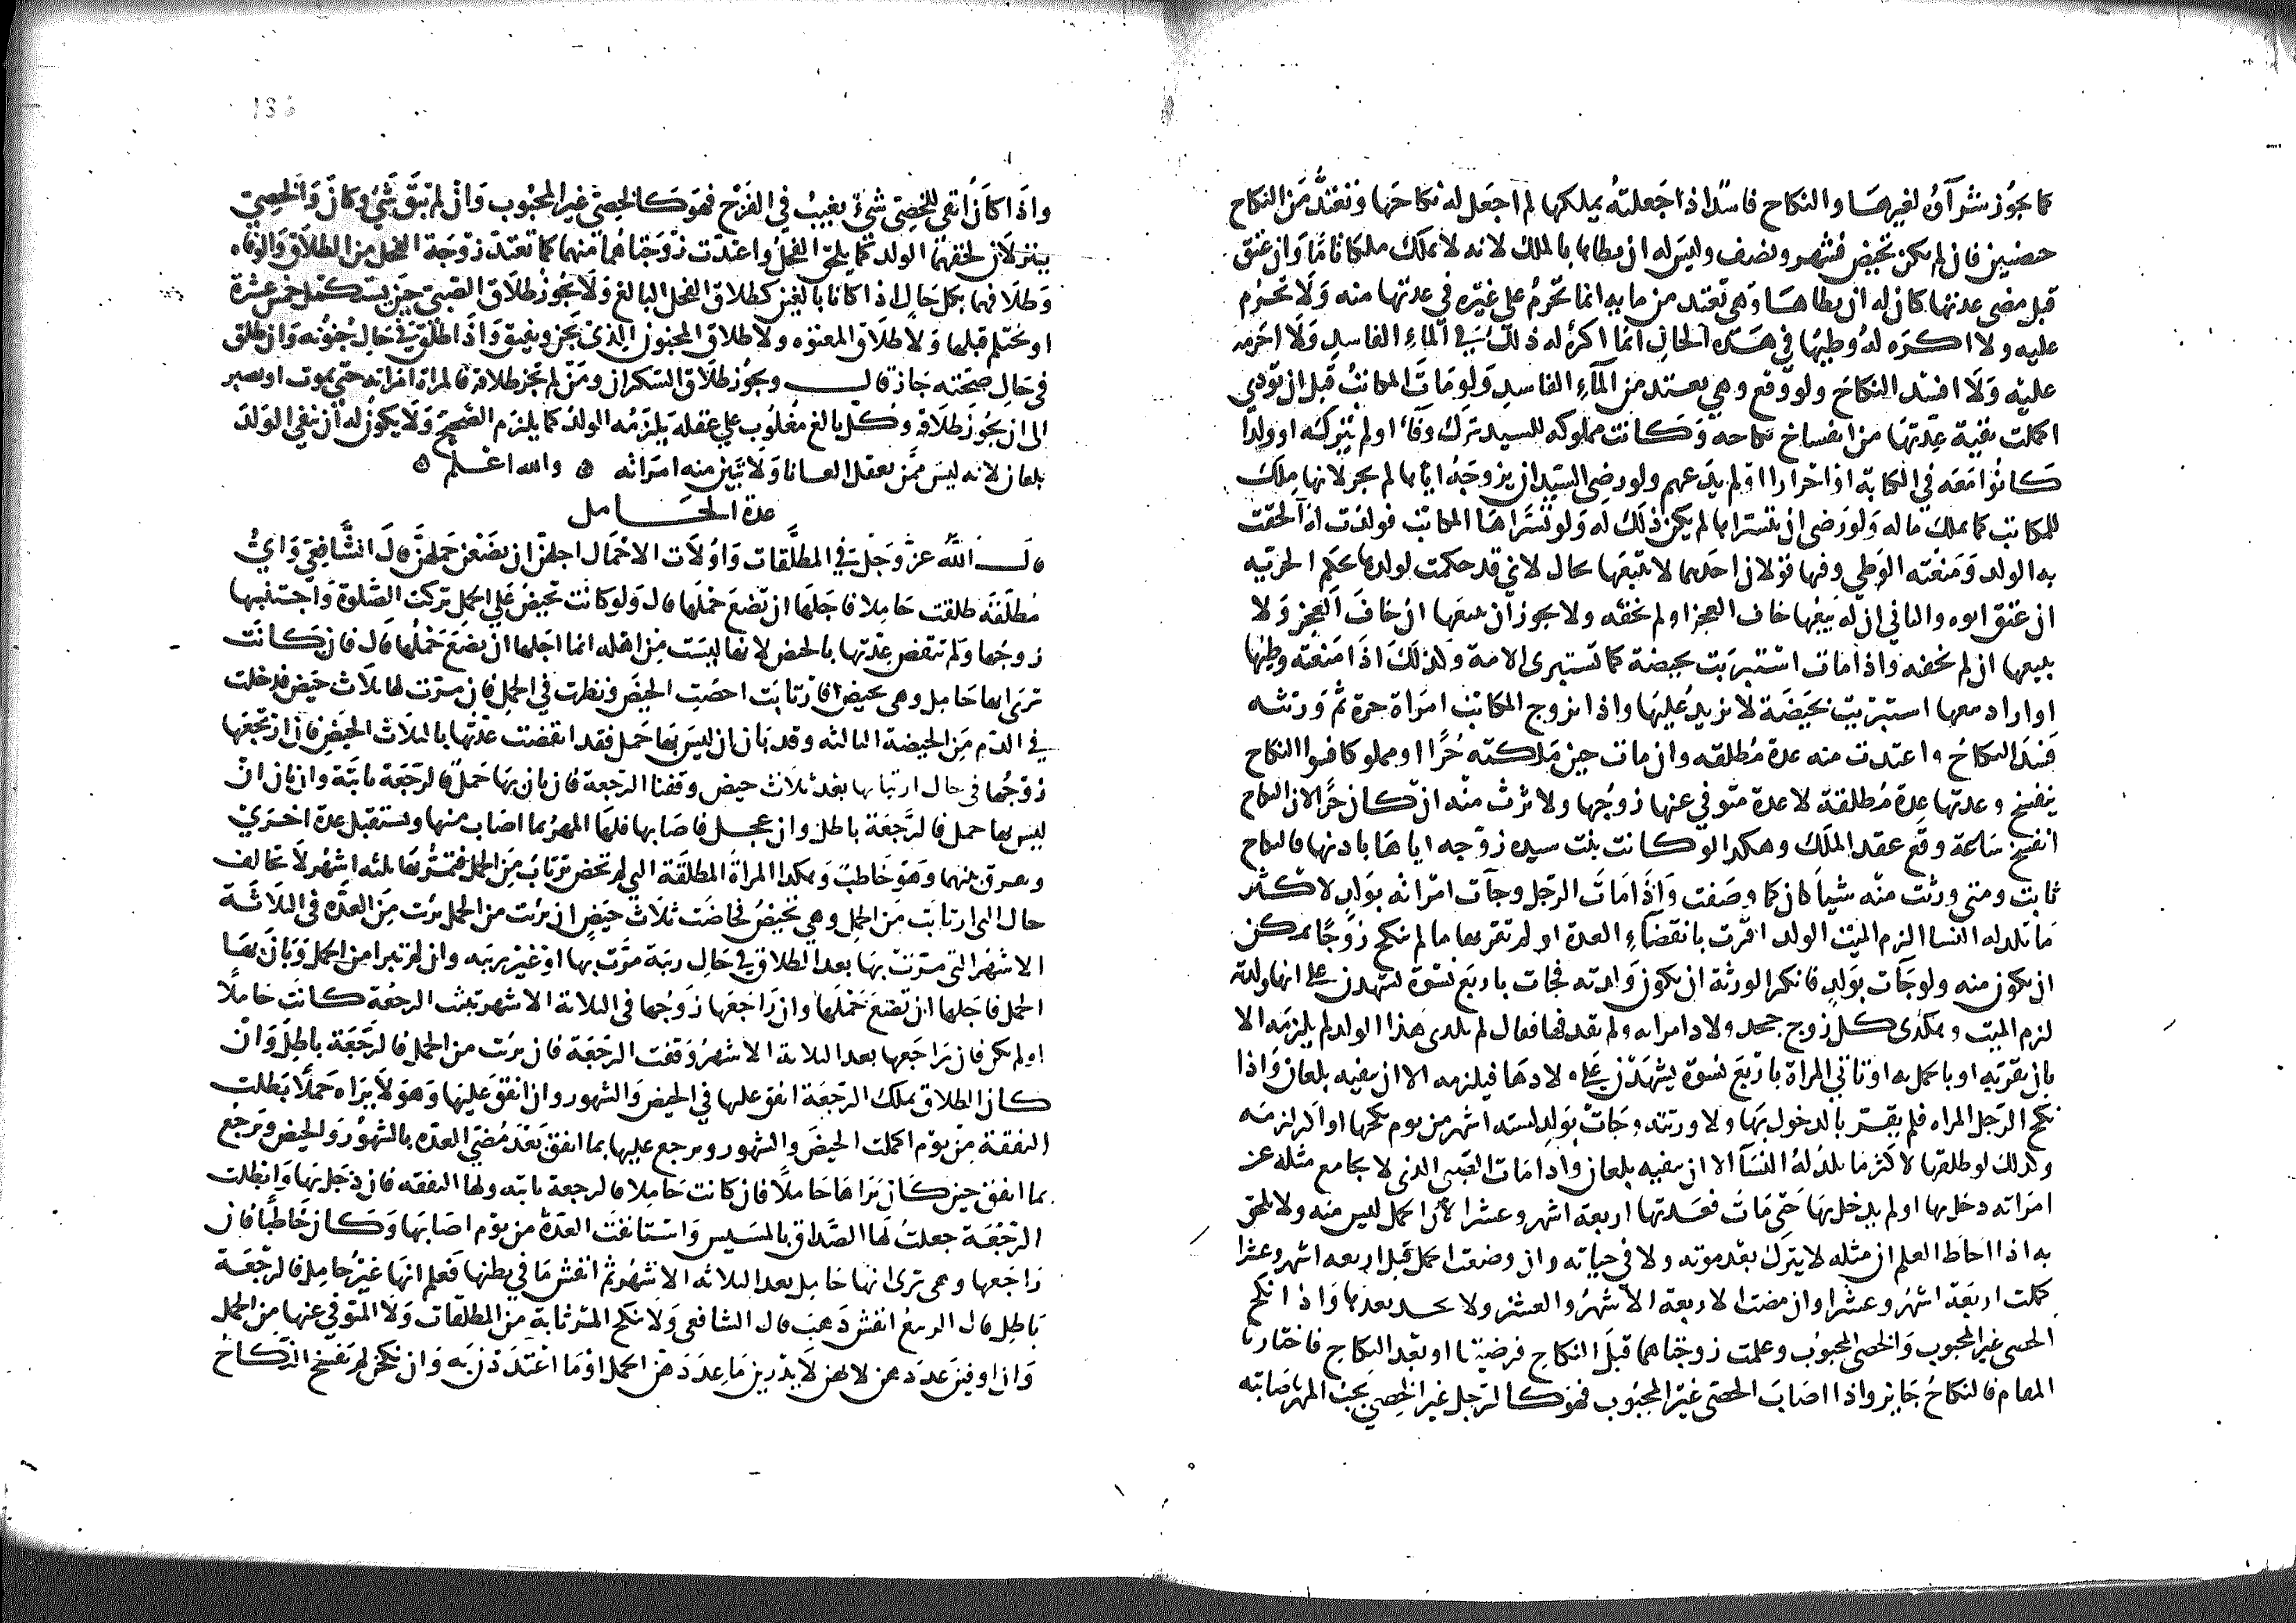 كما يجوز شراؤه لغيرها والنكاح فاسدا اذا جعلته يملكها لم اجعل له نكاحها وتعتد من النكاح
حيضتين فان لم تكن تحيض فشهر ونصف وليس له ان يطاها بالملك لانه لا يملك ملكا تاما وان عتق
قبل مضى عدتها كان له ان يطاها وهى تعتد من مايه انما تحرم على غيره في عدتها منه ولا تحرم
عليه ولا اكره له وطيها في هذه الحال انما اكره له ذلك في الماء الفاسد ولا احرمه
عليه ولا افسد النكاح ولو وقع وهي تعتد من الماء الفاسد ولو مات المكاتب قبل ان يودي
اكملت بقية عدتها من انفساخ نكاحه وكانت مملوكه للسيد ترك وفاء او لم يتركه او ولدا
كانوا معه في الكتابة او احرارا او لم يدعهم ولو رضى السيد ان يزوجه اياها لم يجز لانها ملك
للمكاتب كما يملك ماله ولو رضى ان يتسراها لم يكن ذلك له ولو تسراها المكاتب فولدت او الحقت
به الولد ومنعته الوطي وفيها قولان احدهما لا تبيعها بحال لاني قد حكمت لولدها بحكم الحريه
ان عتق ابوه والثاني ان له بيعها خاف العجز او لم يخفه ولا يجوز ان يبيعها ان خاف العجز ولا
يبيعها ان لم يخفه واذا مات استبرت بحيضة كما تستبرى الامة وكذلك اذا منعته وطيها
او اراد بيعها استبريت بحيضة لا تزيد عليها واذا تزوج المكاتب امراة حرة ثم ورثته
فسد النكاح واعتدت منه عدة مطلقه وان مات حين ملكته حرا او مملوكا فسوا النكاح
ينفسخ وعدتها عدة مطلقة لا عدة متوفي عنها زوجها ولا ترث منه ان كان حرا لان النكاح
انفسخ ساعة وقع عقد الملك وهكذا لو كانت بنت سيده زوجه اياها باذنها فالنكاح
ثابت ومتى ورثت منه شيا كان كما وصفت واذا مات الرجل وجات امراته بولد لاكثر
ما تلد له النسا الزم الميت الولد اقرت بانقضاء العدة او لم تقر بها ما لم تنكح زوجا يمكن
ان يكون منه ولو جات بولد فانكر الورثة ان يكون ولدته فجات باربع نسوة تشهدن على انها ولدته
لزم الميت وهكذى كل زوج جحد ولاد امراته ولم يقذفها فقال لم تلدى هذا الولد لم يلزمه الا
بان يقر به او بالحمل به او تاتي المراة باربع نسوة يشهدن على ولادها فيلزمه الا ان ينفيه بلعان واذا
نكح الرجل المراه فلم يقر بالدخول بها ولا ورثته وجات بولد لسته اشهر من يوم نكحها او اكثر لزمه
وكذلك لو طلقها لاكثر ما تلد له النسآ الا ان ينفيه بلعان واذا مات الصبى الذى لا يجامع مثله عن
امراته دخل بها او لم يدخل بها حتى مات فعدتها اربعة اشهر وعشرا لان الحمل ليس منه ولا يلحق
به اذا احاط العلم ان مثله لا ينزل بعد موته ولا في حياته وان وضعت الحمل قبل اربعه اشهر وعشرا
كملت اربعة اشهر وعشرا وان مضت الاربعة الاشهر والعشر ولا تحد بعدها واذا نكح
الخصى غير المجبوب والخصى المجبوب وعلمت زوجتاهما قبل النكاح فرضيتا او بعد النكاح فاختارتا
المقام فالنكاح جايز واذا اصاب الخصى غير المجبوب فهو كالرجل غير الخصي يجب المهر باصابته
واذا كان بقى للخصى شيء يغيب في الفرج فهو كالخصى غير المجبوب وان لم يبق شيء وكان والخصي
ينزلان لحقهما الولد كما يلحق الفحل واعتدت زوجتاهما منهما كما تعتد زوجة الفحل من الطلاق والوفاه
وطلاقهما بكل حال اذا كانا بالغين كطلاق الفحل البالغ ولا يجوز طلاق الصبى حتى يستكمل خمس عشرة
او يحتلم قبلها ولا طلاق المعتوه ولا طلاق المجنون الذي يجن ويفيق واذا طلق في حال جنونه وان طلق
فى حال صحته جاز قال ويجوز طلاق السكران ومن لم يجز طلاقه فالمراة امراته حتى يموت او يصير
الى ان يجوز طلاقه وكل بالغ مغلوب على عقله يلزمه الولد كما يلزم الصحيح ولا يكون له ان ينفي الولد
بلعان لانه ليس ممن يعقل لعانا ولا تبين منه امراته ٥ والله اعلم ٥
عدة الحامل
قال الله عز وجل في المطلقات واولات الاحمال اجلهن ان يضعن حملهن قال الشافعي واي
مطلقة طلقت حاملا فاجلها ان تضع حملها قال ولو كانت تحيض على الحمل تركت الصلوة واجتنبها
زوجها ولم تنقض عدتها بالحيض لانها ليست من اهله انما اجلها ان تضع حملها قال فان كانت
ترى انها حامل وهى تحيض فارتابت احصت الحيض ونظرت في الحمل فان مرت لها ثلاث حيض فدخلت
في الدم من الحيضة الثالثه وقد بان ان ليس بها حمل فقد انقضت عدتها بالثلاث الحيض فان ارتجعها
زوجها في حال ارتيابها بعد ثلاث حيض وقفنا الرجعة فان بان بها حمل فالرجعة ثابتة وان بان ان
ليس بها حمل فالرجعة باطل وان عجل فاصابها فلها المهر بما اصاب منها وتستقبل عدة اخري
ويفرق بينهما وهو خاطب وهكذا المراة المطلقة التي لم تحض ترتاب من الحمل فتمر بها ثلثه اشهر لا تخالف
حال التى ارتابت من الحمل وهي تحيض فحاضت ثلاث حيض ان برئت من الحمل برئت من العده فى الثلاثة
الاشهر التى مرت بها بعد الطلاق في حال ريبة مرت بها او غير ريبه وان لم تبرا من الحمل وبان بها
الحمل فاجلها ان تضع حملها وان راجعها زوجها فى الثلاثة الاشهر ثبتت الرجعة كانت حاملا
او لم تكن فان راجعها بعد الثلاثة الاشهر وقفت الرجعة فان برئت من الحمل فالرجعة باطل وان
كان الطلاق يملك الرجعة انفق عليها في الحيض والشهور وان انفق عليها وهو لا يراه حملا بطلت
النفقة من يوم اكملت الحيض والشهور ويرجع عليها بما انفق بعد مضي العده بالشهور والحيض ويرجع
بما انفق حين كان يراها حاملا فان كانت حاملا فالرجعة ثابته ولها النفقه فان دخل بها وابطلت
الرجعة جعلت لها الصداق بالمسيس واستانفت العدة من يوم اصابها وكان خاطبا فان
راجعها وهى ترى انها حامل بعد الثلاثه الاشهر ثم انفش ما في بطنها فعلم انها غير حامل فالرجعة
باطل قال الربيع انفش ذهب قال الشافعي ولا تنكح المرتابة من المطلقات ولا المتوفي عنها من الحمل
وان اوفين عددهن لانهن لا يدرين ما عددهن الحمل او ما اعتددن به وان نكحن لم نفسخ النكاح